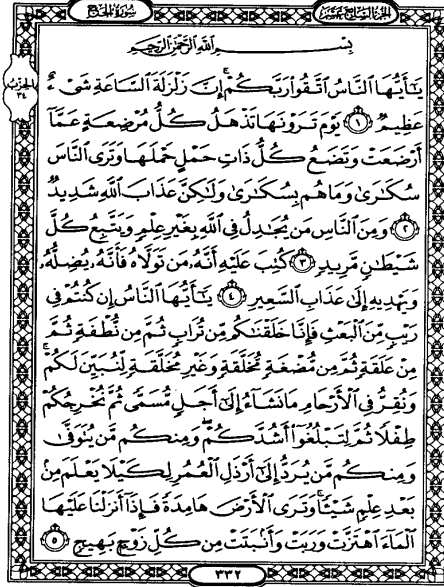 سُورَةُ الحَجِّ
الجزء السابع عشر
الحزب ٣٤
بِسْمِ ٱللَّهِ ٱلرَّحْمَٰنِ ٱلرَّحِيمِ
يَٰٓأَيُّهَا ٱلنَّاسُ ٱتَّقُوا۟ رَبَّكُمْ ۚ إِنَّ زَلْزَلَةَ ٱلسَّاعَةِ شَىْءٌ
عَظِيمٌ ١ يَوْمَ تَرَوْنَهَا تَذْهَلُ كُلُّ مُرْضِعَةٍ عَمَّآ
أَرْضَعَتْ وَتَضَعُ كُلُّ ذَاتِ حَمْلٍ حَمْلَهَا وَتَرَى ٱلنَّاسَ
سُكَٰرَىٰ وَمَا هُم بِسُكَٰرَىٰ وَلَٰكِنَّ عَذَابَ ٱللَّهِ شَدِيدٌ
٢ وَمِنَ ٱلنَّاسِ مَن يُجَٰدِلُ فِى ٱللَّهِ بِغَيْرِ عِلْمٍ وَيَتَّبِعُ كُلَّ
شَيْطَٰنٍ مَّرِيدٍ ٣ كُتِبَ عَلَيْهِ أَنَّهُۥ مَن تَوَلَّاهُ فَأَنَّهُۥ يُضِلُّهُۥ
وَيَهْدِيهِ إِلَىٰ عَذَابِ ٱلسَّعِيرِ ٤ يَٰٓأَيُّهَا ٱلنَّاسُ إِن كُنتُمْ فِى
رَيْبٍ مِّنَ ٱلْبَعْثِ فَإِنَّا خَلَقْنَٰكُم مِّن تُرَابٍ ثُمَّ مِن نُّطْفَةٍ ثُمَّ
مِنْ عَلَقَةٍ ثُمَّ مِن مُّضْغَةٍ مُّخَلَّقَةٍ وَغَيْرِ مُخَلَّقَةٍ لِّنُبَيِّنَ لَكُمْ ۚ
وَنُقِرُّ فِى ٱلْأَرْحَامِ مَا نَشَآءُ إِلَىٰٓ أَجَلٍ مُّسَمًّى ثُمَّ نُخْرِجُكُمْ
طِفْلًا ثُمَّ لِتَبْلُغُوٓا۟ أَشُدَّكُمْ ۖ وَمِنكُم مَّن يُتَوَفَّىٰ
وَمِنكُم مَّن يُرَدُّ إِلَىٰٓ أَرْذَلِ ٱلْعُمُرِ لِكَيْلَا يَعْلَمَ مِنۢ
بَعْدِ عِلْمٍ شَيْـًٔا ۚ وَتَرَى ٱلْأَرْضَ هَامِدَةً فَإِذَآ أَنزَلْنَا عَلَيْهَا
ٱلْمَآءَ ٱهْتَزَّتْ وَرَبَتْ وَأَنۢبَتَتْ مِن كُلِّ زَوْجٍۭ بَهِيجٍ ٥
٣٣٢